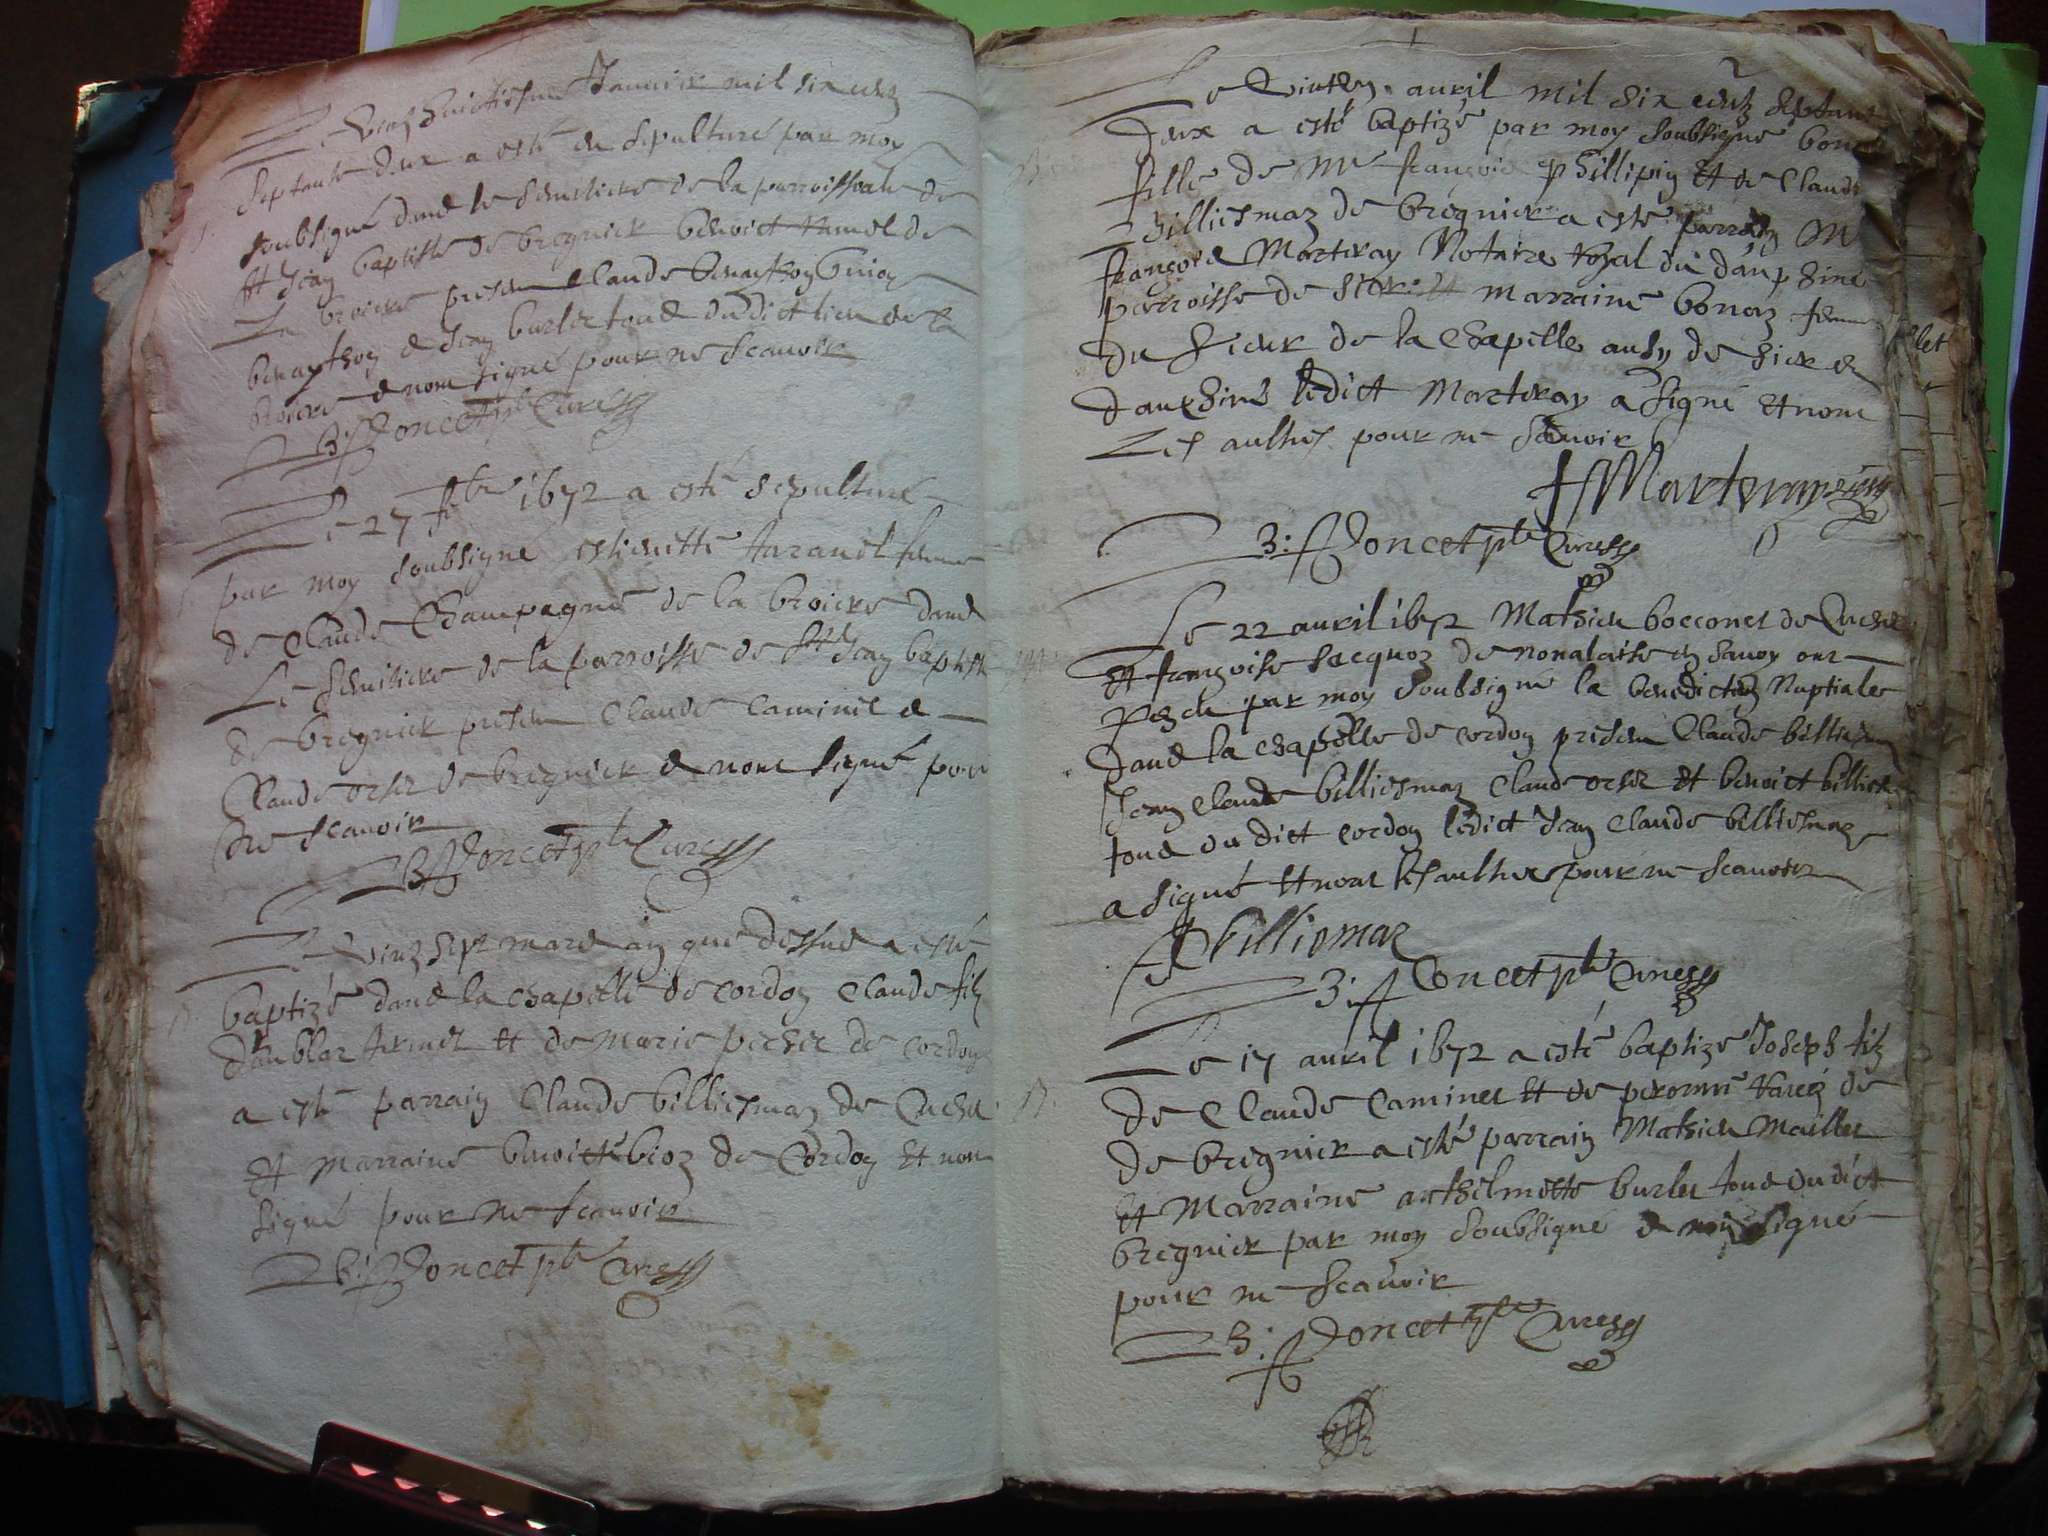 Le vingt huictiesme Januier mil six centz
septante deux a esté en sepulturé par moy
soubsigné dans le semetiere de la parroissiale de
St Jean baptiste de bregnier benoict de
La broiere presens Claude
& Jean burlet tous du dict lieu de la
broiere & nont signé pour ne scauoir
Poncet pbr Cure
Le 27 fbr 1672 a esté sepulturé
par moy soubsigné estienette femme
de Claude Champagne de la broiere dans
Le semitiere de la parroisse de St Jean baptiste
de bregnier presens Claude Caminet &
Claude orset de bregnier & nont signé pour
ne scauoir
Poncet pbr Cure
Le vingt sept mars an que dessus a esté
baptizé dans la chapelle de cordon Claude filz
et de Marie pechet de cordon
a esté parrain Claude billiesmaz de Cuchet
et marraine benoicte bioz de Cordon et nont
signé pour ne scauoir
Poncet pbr Cure
Le avril mil six centz septante
deux a esté baptizé par moy soubsigné
fille de Mre françois Phillipin et de Claude
billiesmaz de bregnier a esté parrain M
françois Marteray Notaire royal du dauphiné
parroisse de marraine bonaz femme
du sieur de la Chapelle ausy de
dauphiné ledict Marteray a signé et non
Les aultres pour ne scauoir
Marteray
Poncet pbr Cure
Le 22 auril 1672 Mathieu bocconet de Cuchet
et françoise Jacquoz de nonalaise en sauoy ont
par moy soubsigné la benediction Nuptiale
dans la chapelle de cordon presens Claude billiesmaz
Jean Claude billiesmaz Claude orset et benoict
tous du dict cordon ledict Jean Claude billiesmaz
a signé et nont les aultres pour ne scauoir
billiemaz
Poncet pbr Cure
Le 17 auril 1672 a esté baptizé Joseph filz
de Claude Caminet et de peronne de
de bregnier a esté parrain Mathieu Maillet
et Marraine anthelmette burlet tous du dict
bregnier par moy soubsigné & non signé
pour ne scauoir
Poncet pbr Cure